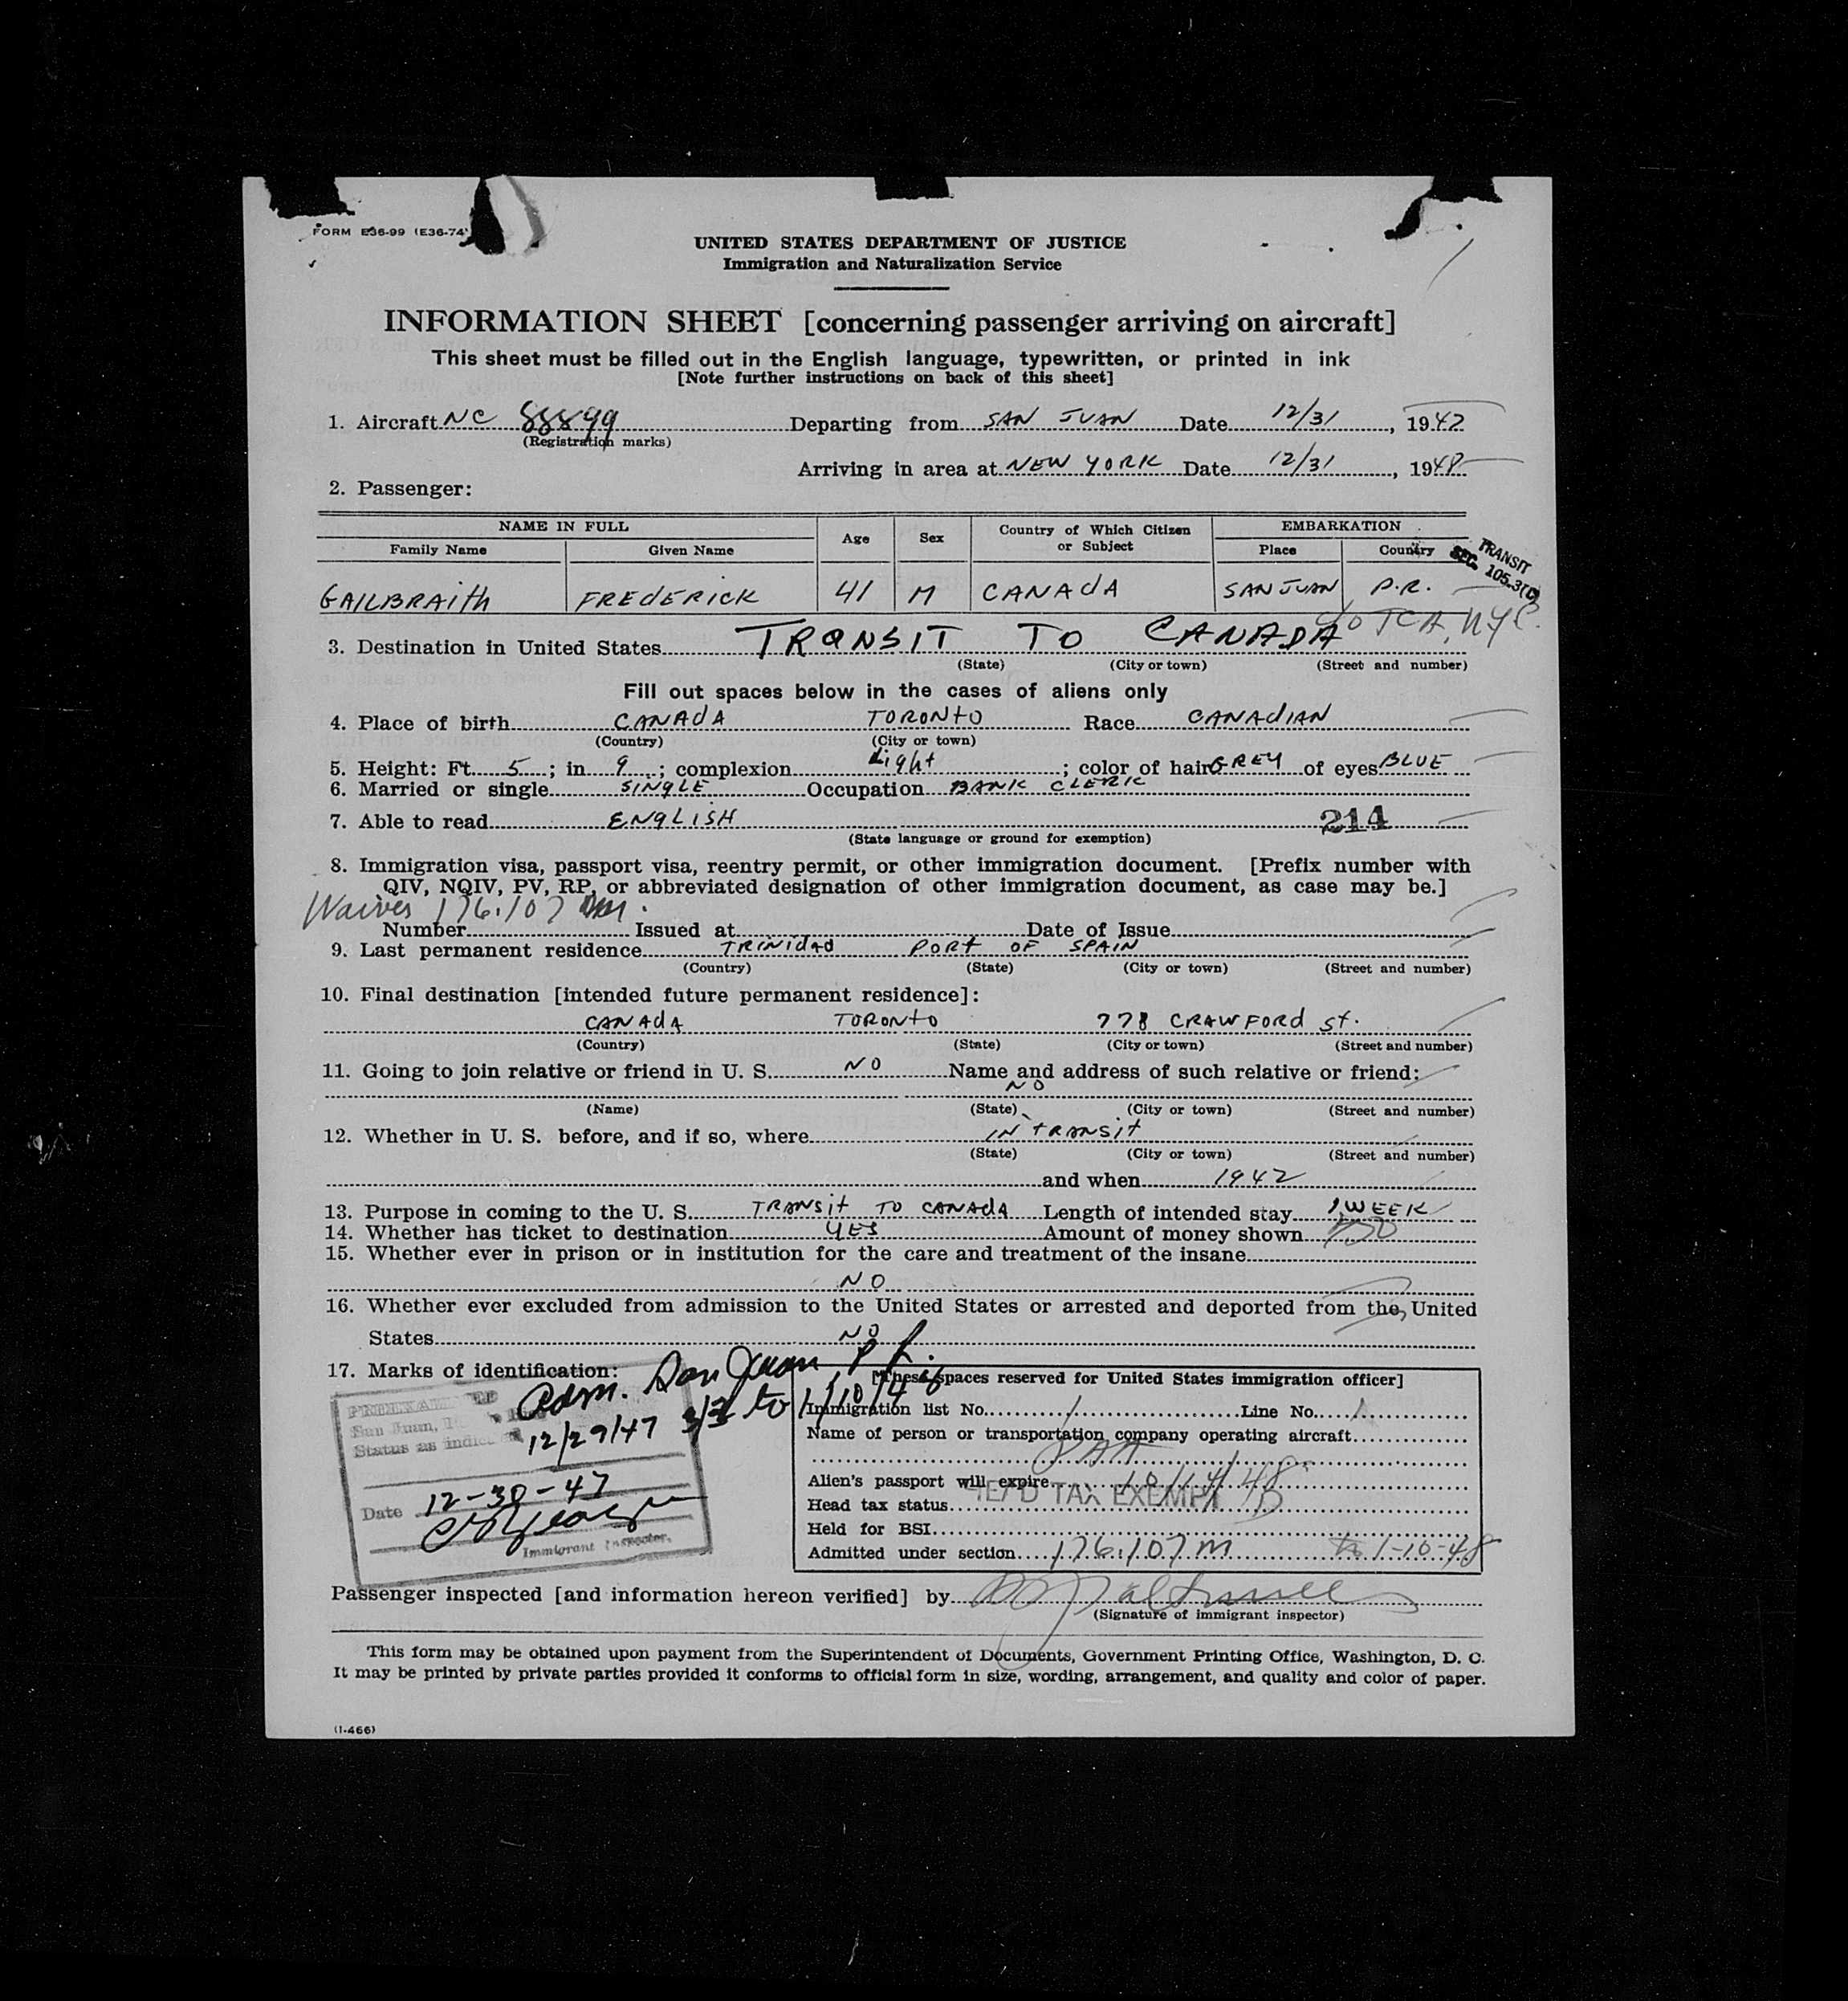 FORM E36-99 (E36-74)
UNITED STATES DEPARTMENT OF JUSTICE
Immigration and Naturalization Service
INFORMATION SHEET [concerning passenger arriving on aircraft]
This sheet must be filled out in the English language, typewritten, or printed in ink
[Note further instructions on back of this sheet]
1. Aircraft NC 88899 Departing from SAN JUAN Date 12/31, 1947
(Registration marks)
Arriving in area at NEW YORK Date 12/31, 1948
2. Passenger:
NAME IN FULL Age Sex Country of Which Citizen or Subject EMBARKATION
Family Name Given Name Place Country
TRANSIT
SEC. 105.3(c)
GAILBRAITH FREDERICK 41 M CANADA SAN JUAN P.R.
c/o TCA, NYC.
3. Destination in United States TRANSIT TO CANADA
(State) (City or town) (Street and number)
Fill out spaces below in the cases of aliens only
4. Place of birth CANADA TORONTO Race CANADIAN
(Country) (City or town)
5. Height: Ft. 5; in 9; complexion Light; color of hair GREY of eyes BLUE
6. Married or single SINGLE Occupation BANK CLERK
7. Able to read ENGLISH 214
(State language or ground for exemption)
8. Immigration visa, passport visa, reentry permit, or other immigration document. [Prefix number with
QIV, NQIV, PV, RP, or abbreviated designation of other immigration document, as case may be.]
Waives 176.107
Number Issued at Date of Issue
9. Last permanent residence TRINIDAD PORT OF SPAIN
(Country) (State) (City or town) (Street and number)
10. Final destination [intended future permanent residence]:
CANADA TORONTO 778 CRAWFORD St.
(Country) (State) (City or town) (Street and number)
11. Going to join relative or friend in U. S. NO Name and address of such relative or friend:
NO
(Name) (State) (City or town) (Street and number)
12. Whether in U. S. before, and if so, where IN TRANSIT
(State) (City or town) (Street and number)
and when 1942
13. Purpose in coming to the U. S. TRANSIT TO CANADA Length of intended stay 1 WEEK
14. Whether has ticket to destination YES Amount of money shown
15. Whether ever in prison or in institution for the care and treatment of the insane
NO
16. Whether ever excluded from admission to the United States or arrested and deported from the United
States NO
17. Marks of identification:
Adm. San Juan, P.R.
12/29/47 to 1/10/48
San Juan,
Status as indic
Date 12-30-47
Immigrant Inspector.
[These spaces reserved for United States immigration officer]
Immigration list No. 1 Line No. 1
Name of person or transportation company operating aircraft
PAA
Alien's passport will expire 10/14/48
Head tax status HEAD TAX EXEMPT
Held for BSI
Admitted under section 176.107 m to 1-10-48
Passenger inspected [and information hereon verified] by
(Signature of immigrant inspector)
This form may be obtained upon payment from the Superintendent of Documents, Government Printing Office, Washington, D. C.
It may be printed by private parties provided it conforms to official form in size, wording, arrangement, and quality and color of paper.
(I-466)